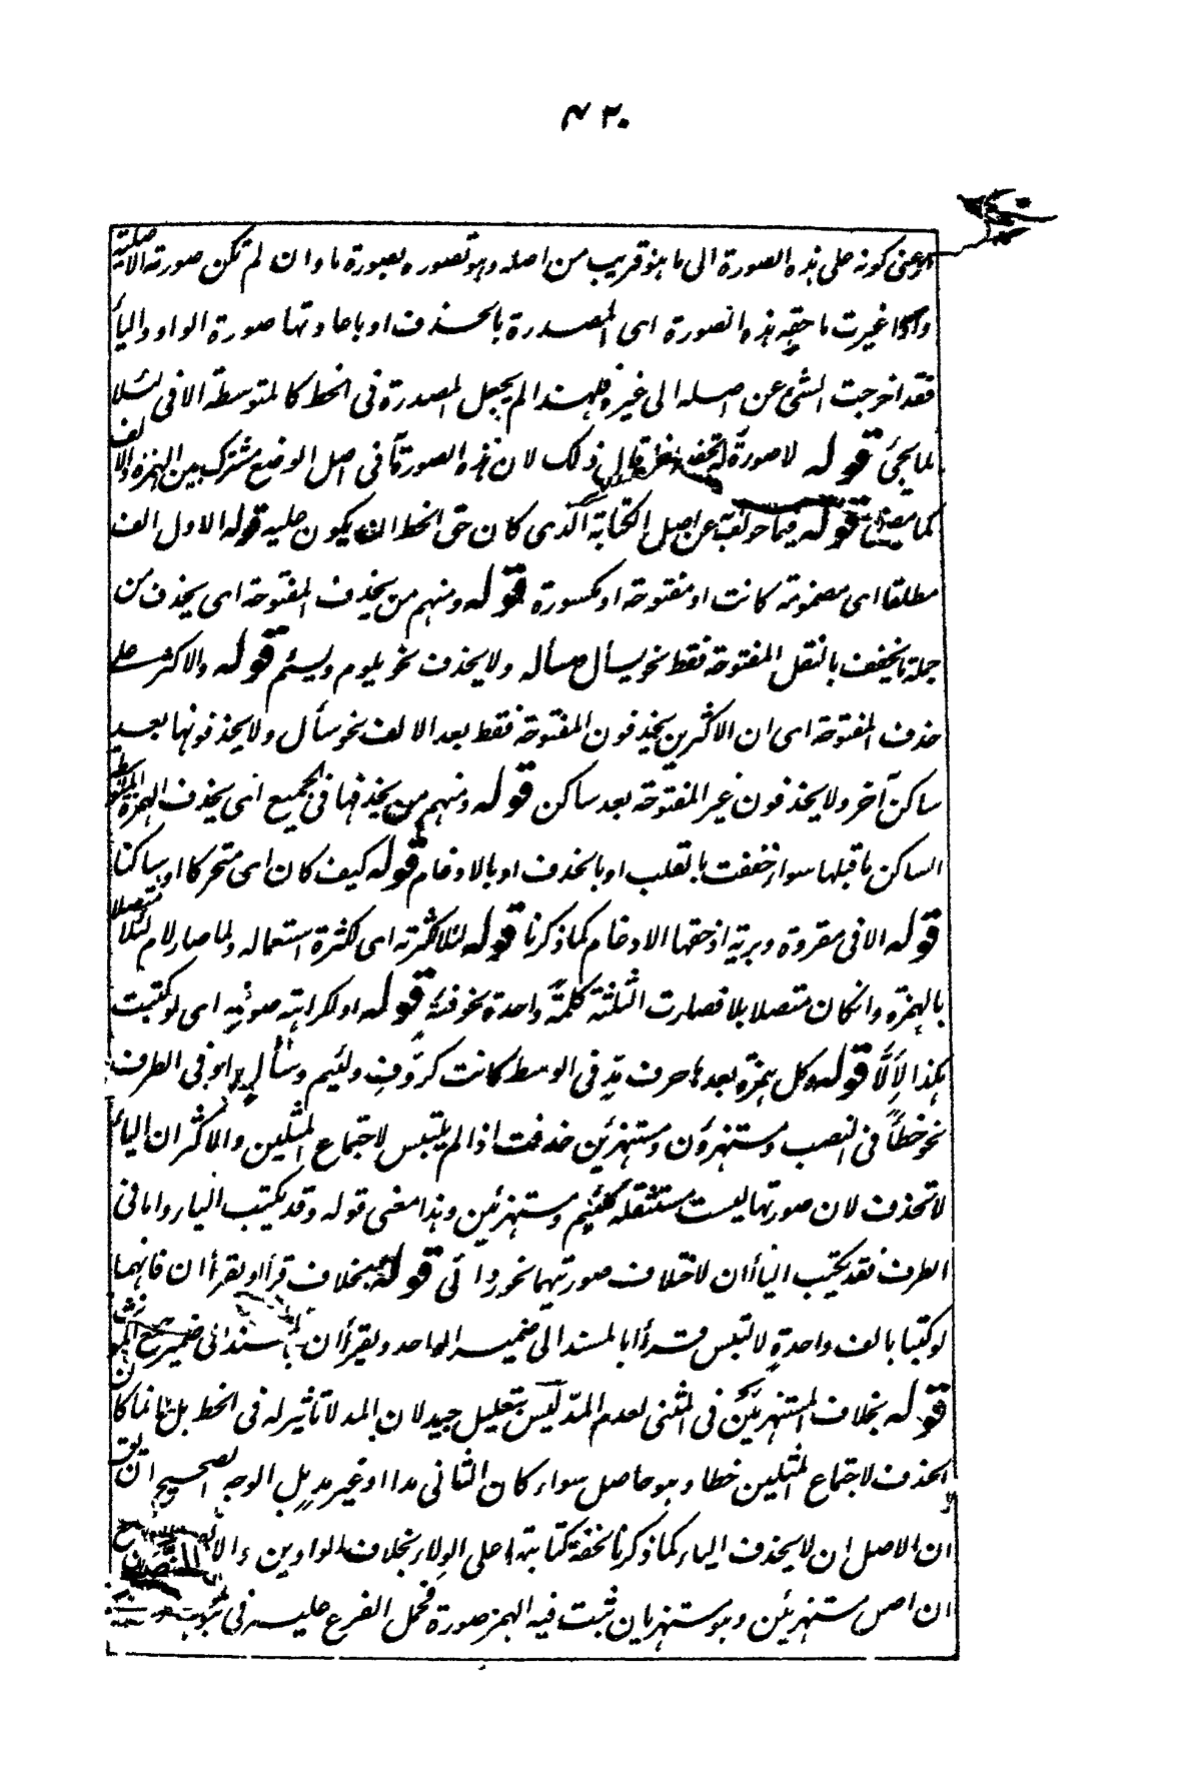 ٤٢٠
اعنى كونه على هذه الصورة الى ما هو قريب من اصله وهو تصوره بصورة ما وان لم تكن صورته الاصلية
واذا غيرت ما حقه هذه الصورة اى المصدرة بالحذف او باعادتها صورة الواو والياء
فقد اخرجت الشئ عن اصله الى غيره فلهذا لم يجعل المصدرة فى الخط كالمتوسطة الا فى لئلا
لما يجئ قوله لا صورة قال ذلك لان هذه الصورة آ فى اصل الوضع مشترك بين الهمزة والالف
كما قوله فيما خولف به عن اصل الكتابة الذى كان حق الخط ان يكون عليه قوله الاول الف
مطلقا اى مضمومة كانت او مفتوحة او مكسورة قوله ومنهم من يحذف المفتوحة اى يحذف من
جملة ما يخفف بالنقل المفتوحة فقط نحو يسأل مسألة ولا يحذف نحو يلوم ويسئم قوله والاكثر على
حذف المفتوحة اى ان الاكثرين يحذفون المفتوحة فقط بعد الالف نحو سأل ولا يحذفونها بعد
ساكن آخر ولا يحذفون غير المفتوحة بعد ساكن قوله ومنهم من يحذفها فى الجميع اى يحذف الهمزة
الساكن ما قبلها سواء خففت بالقلب او بالحذف او بالادغام قوله كيف كان اى متحركا او ساكنا
قوله الا فى مقروة وبرية اذ حقها الادغام كما ذكرنا قوله لئلا لكثرته اى لكثرة استعماله ولما صار لام لئلا متصلا
بالهمزة وان كان متصلا بلا فصارت الثلثة كلمة واحدة نحو فئة قوله او لكراهة صورته اى لو كتبت
هكذا لِأَلَّا قوله وكل همزة بعدها حرف مد فى الوسط كانت كرؤف ولئيم وسأل او فى الطرف
نحو خطأ فى النصب ومستهزؤن ومستهزئين حذفت اذا لم يلتبس لاجتماع المثلين والاكثر ان الياء
لا تحذف لان صورتها ليست مستثقلة كلئيم ومستهزئين وهذا معنى قوله وقد يكتب الياء واما فى
الطرف فقد يكتب الياأن لاختلاف صورتيهما نحو ردائى قوله بخلاف قراا ويقرأان فانهما
لو كتبا بالف واحدة لالتبس قرأا بالمسند الى ضمير الواحد ويقرأان بالمسند الى ضمير جمع المؤنث
قوله بخلاف المستهزئين فى المثنى لعدم المد ليس بتعليل جيد لان المد لا تأثير له فى الخط بل انما كان
الحذف لاجتماع المثلين خطا وهو حاصل سواء كان الثانى مدا او غير مد بل الوجه الصحيح ان يق
ان الاصل ان لا يحذف الياء كما ذكرنا لخفة كتابتها على الولاء بخلاف الواوين والالفين
ان اصل مستهزئين وهو مستهزيان ثبت فيه للهمز صورة فحمل الفرع عليه فى